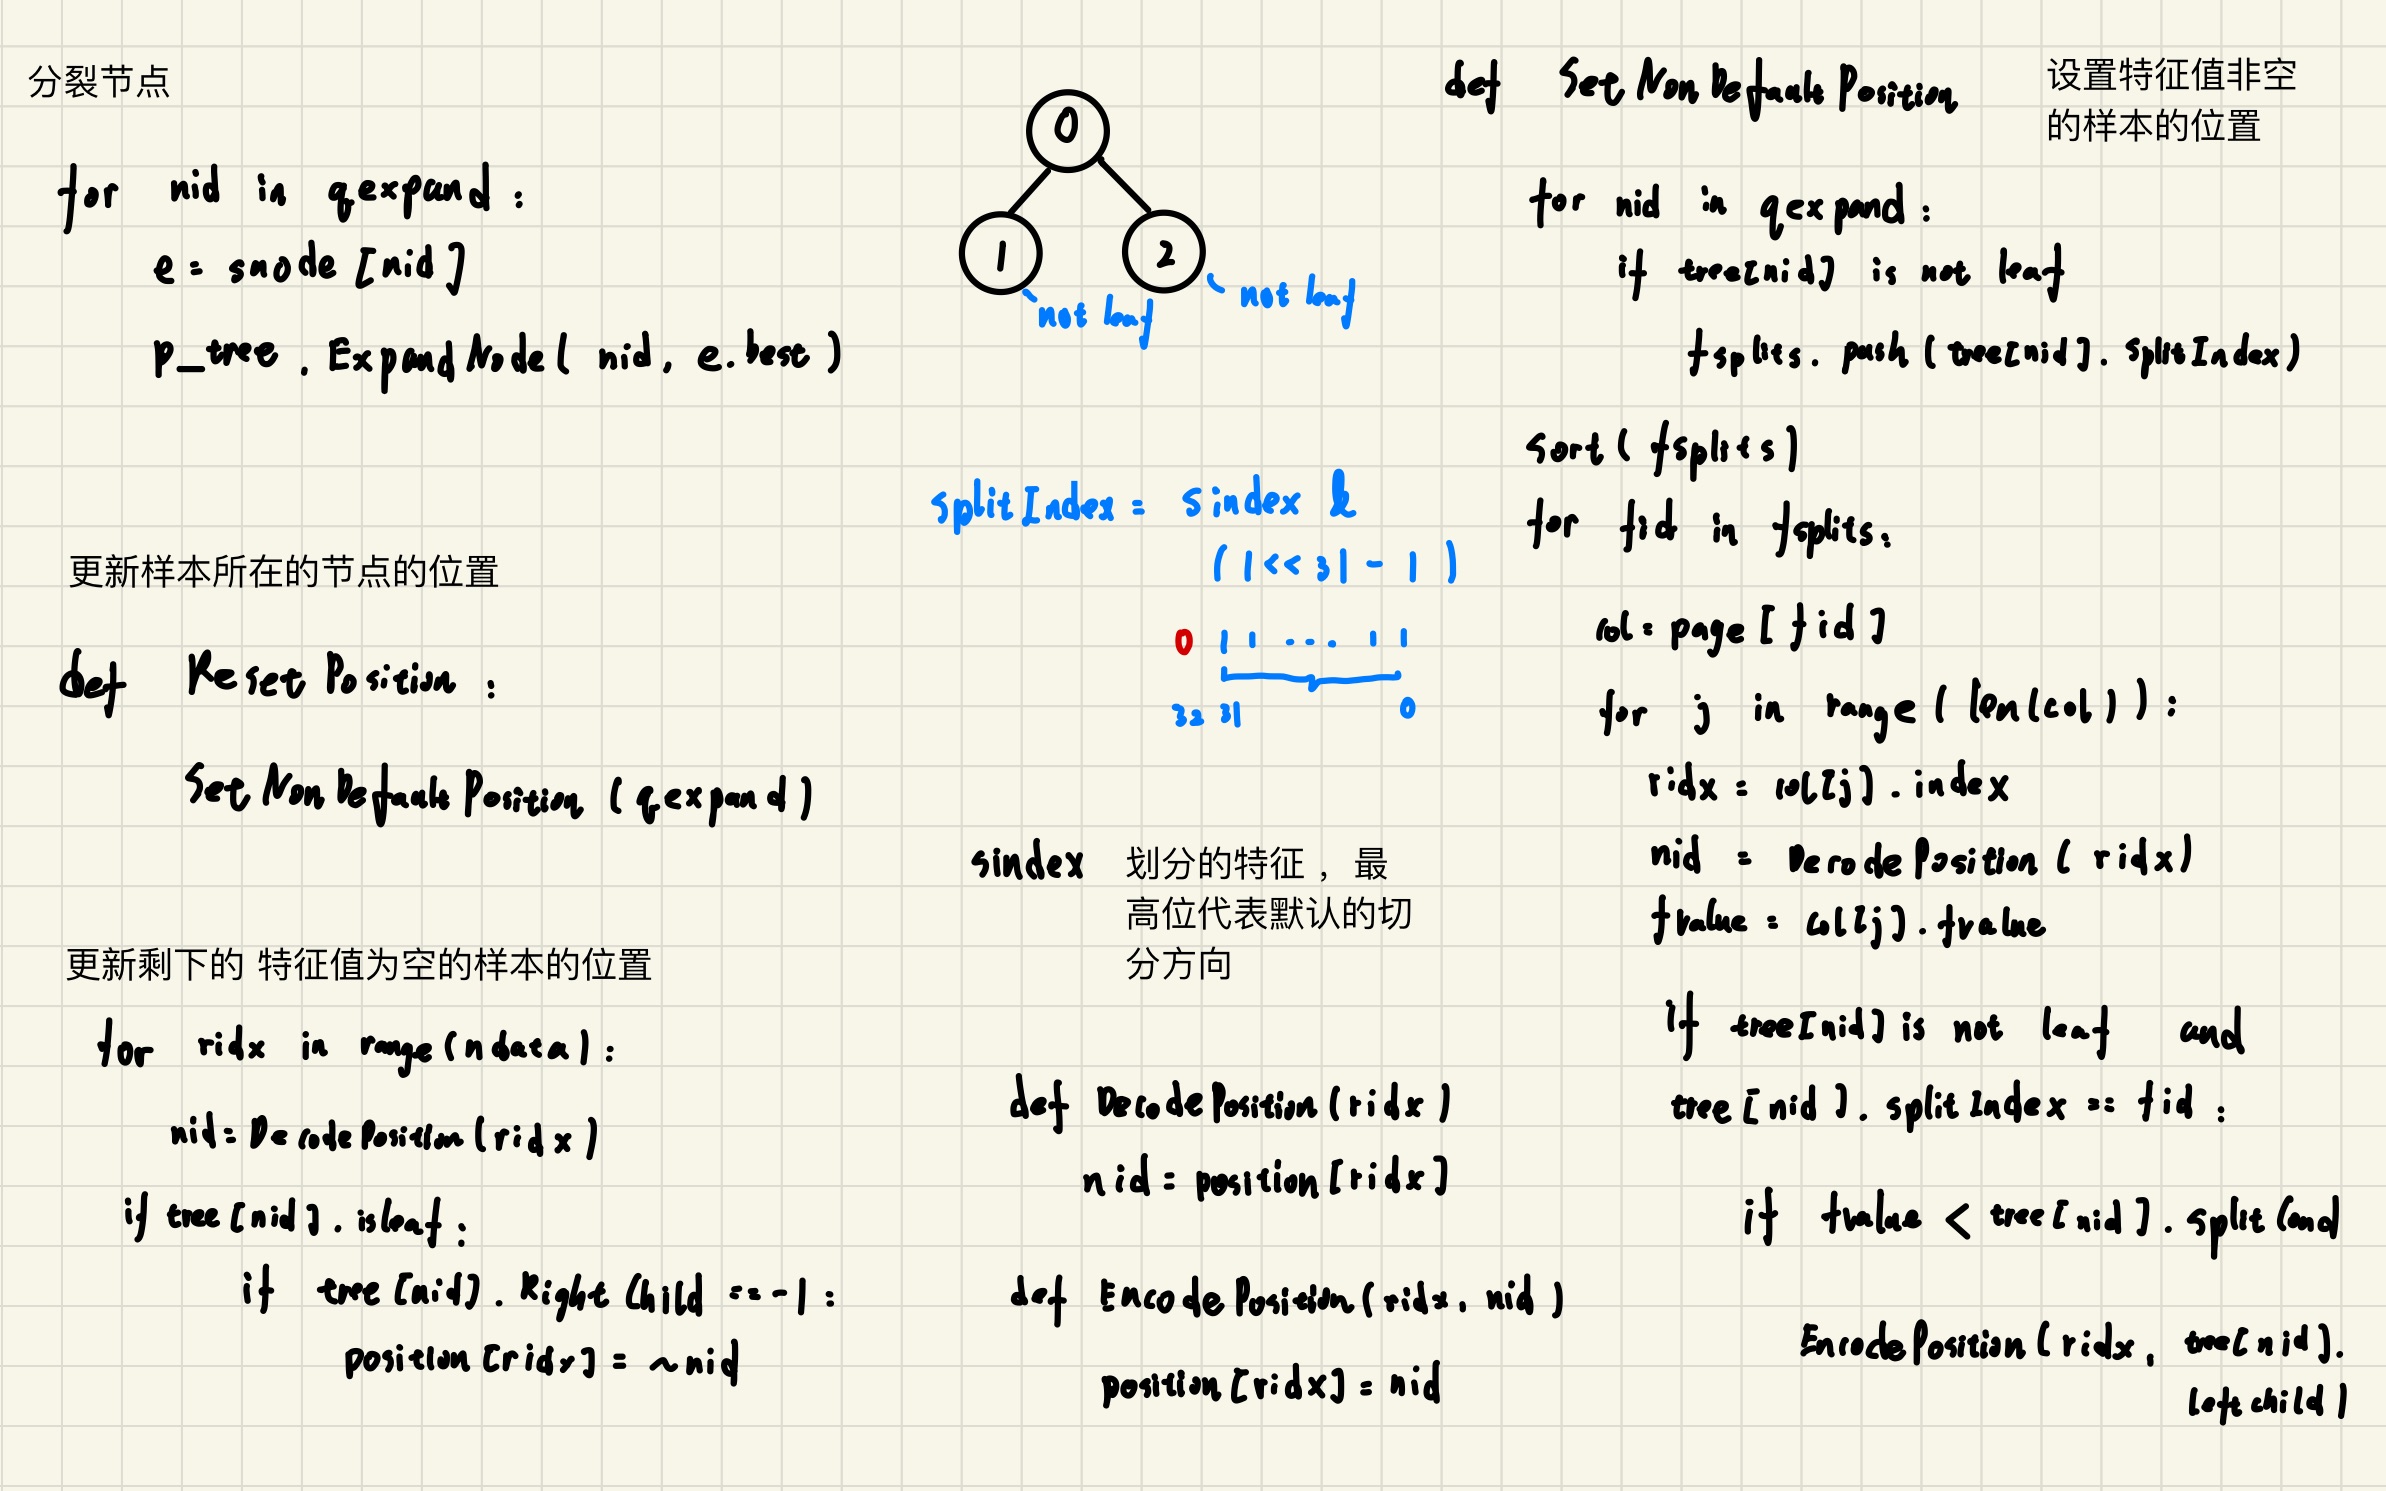 分裂节点
for nid in qexpand:
e = snode[nid]
p_tree.ExpandNode(nid, e.best)
更新样本所在的节点的位置
def ResetPosition:
SetNonDefaultPosition(qexpand)
更新剩下的 特征值为空的样本的位置
for ridx in range(ndata):
nid = DecodePosition(ridx)
if tree[nid].isleaf:
if tree[nid].RightChild == -1:
position[ridx] = ~nid
0
1 2
not leaf not leaf
splitIndex = sindex &
(1<<31 - 1)
0 1 1 ... . 1 1
32 31 0
sindex 划分的特征，最
高位代表默认的切
分方向
def DecodePosition(ridx)
nid = position[ridx]
def EncodePosition(ridx, nid)
position[ridx] = nid
def SetNonDefaultPosition 设置特征值非空
的样本的位置
for nid in qexpand:
if tree[nid] is not leaf
fsplits.push(tree[nid].splitIndex)
sort(fsplits)
for fid in fsplits:
col = page[fid]
for j in range(len(col)):
ridx = col[j].index
nid = DecodePosition(ridx)
fvalue = col[j].fvalue
if tree[nid] is not leaf and
tree[nid].splitIndex == fid:
if fvalue < tree[nid].splitCond
EncodePosition(ridx, tree[nid].
leftchild)